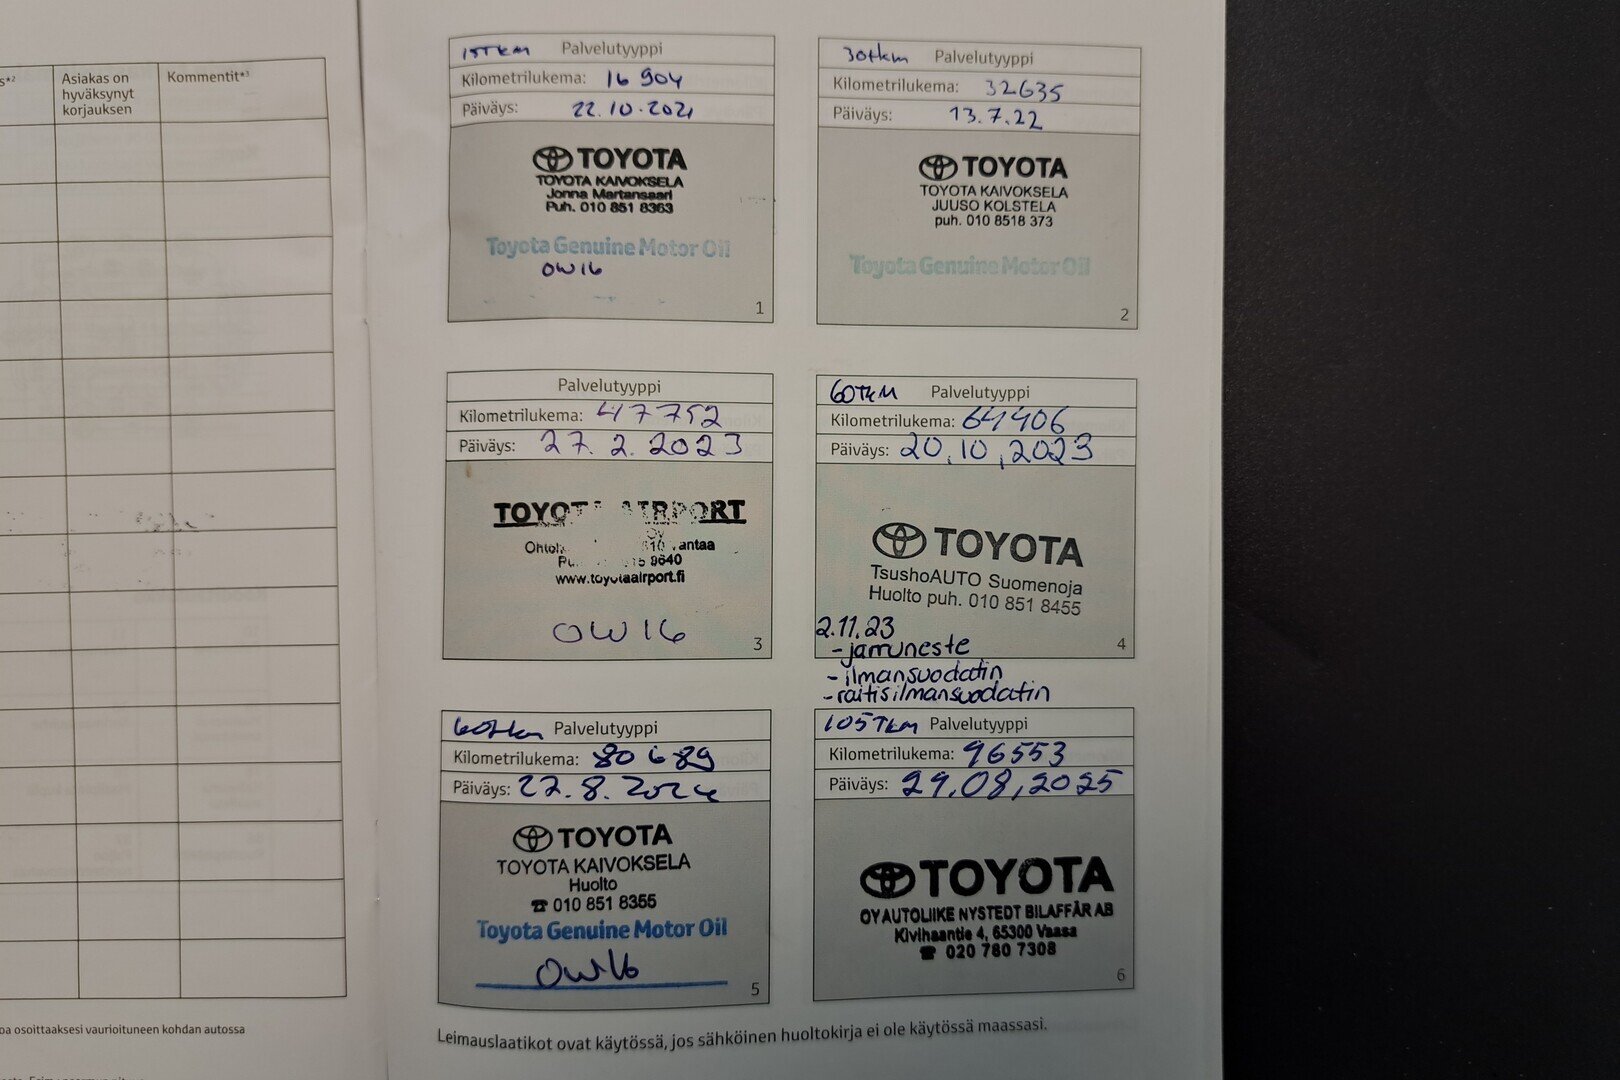 s*2
Asiakas on
hyväksynyt
korjauksen
Kommentit*3
oa osoittaaksesi vaurioituneen kohdan autossa
15Tkm Palvelutyyppi
Kilometrilukema: 16 904
Päiväys: 22.10.2021
TOYOTA
TOYOTA KAIVOKSELA
Jonna Martansaari
Puh. 010 851 8363
Toyota Genuine Motor Oil
0W16
1
30tkm Palvelutyyppi
Kilometrilukema: 32635
Päiväys: 13.7.22
TOYOTA
TOYOTA KAIVOKSELA
JUUSO KOLSTELA
puh. 010 8518 373
Toyota Genuine Motor Oil
2
Palvelutyyppi
Kilometrilukema: 47752
Päiväys: 27.2.2023
TOYOTA AIRPORT
Oy
antaa
9640
www.toyotaairport.fi
0W16
3
60TkM Palvelutyyppi
Kilometrilukema: 64406
Päiväys: 20.10.2023
TOYOTA
TsushoAUTO Suomenoja
Huolto puh. 010 851 8455
2.11.23
- jarruneste
4
- ilmansuodatin
- raitisilmansuodatin
60tkm Palvelutyyppi
Kilometrilukema: 80689
Päiväys: 22.8.2024
TOYOTA
TOYOTA KAIVOKSELA
Huolto
☎ 010 851 8355
Toyota Genuine Motor Oil
0W16
5
105Tkm Palvelutyyppi
Kilometrilukema: 96553
Päiväys: 29.08,2025
TOYOTA
OY AUTOLIIKE NYSTEDT BILAFFÄR AB
Kivihaantie 4, 65300 Vaasa
☎ 020 780 7308
6
Leimauslaatikot ovat käytössä, jos sähköinen huoltokirja ei ole käytössä maassasi.